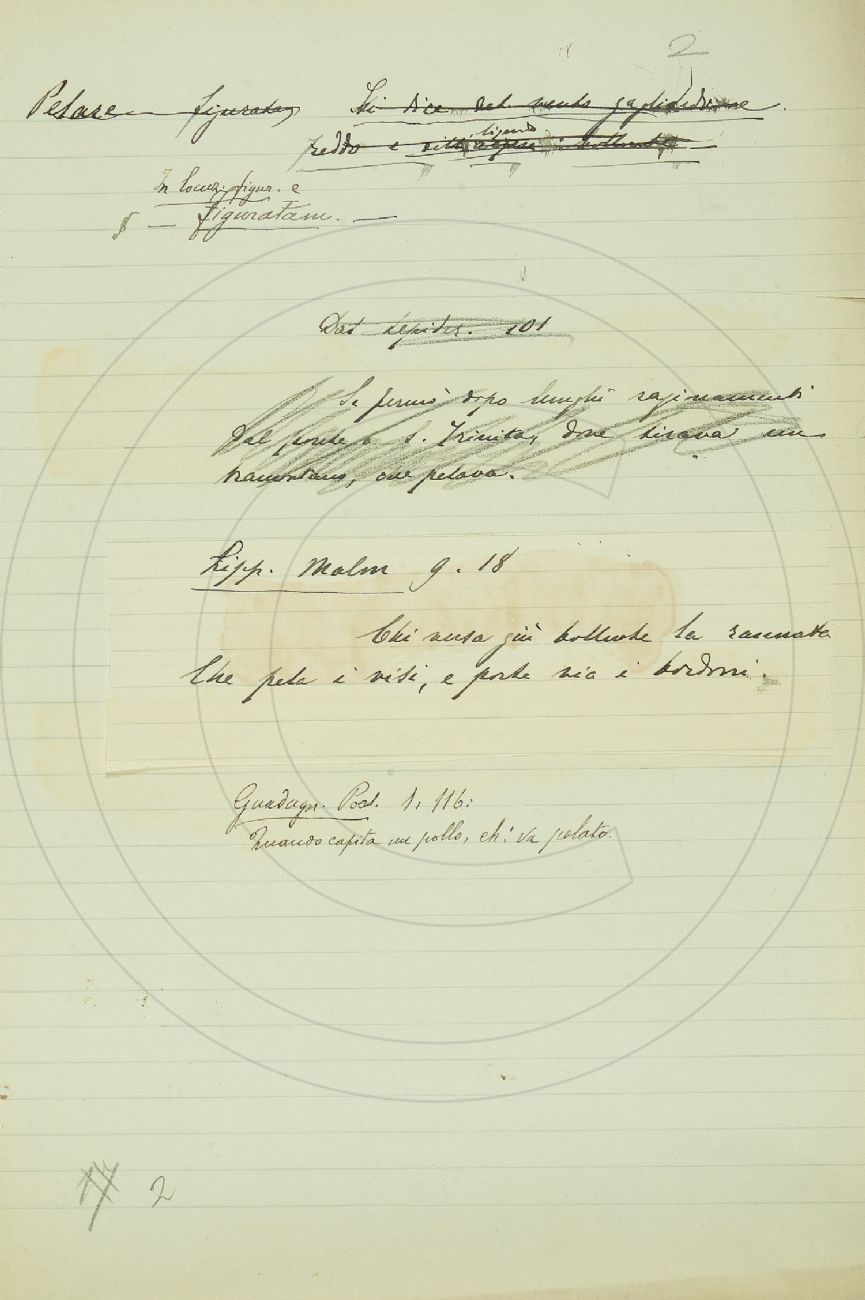 2
Pelare figuratam Si dice del vento gagliardo
freddo e liquido
In locuz. figur. e
§ — figuratam. —
Dat Lepidez. 101
Si fermò dopo lunghi ragionamenti
dal ponte a S. Trinita, dove tirava un
tramontano, che pelava.
Lipp. Malm 9. 18
Chi versa giù bollente la rannata
Che pela i visi, e porta via i bordoni.
Guadagn. Poes. 1, 116:
Quando capita un pollo, ch' va pelato.
17 2